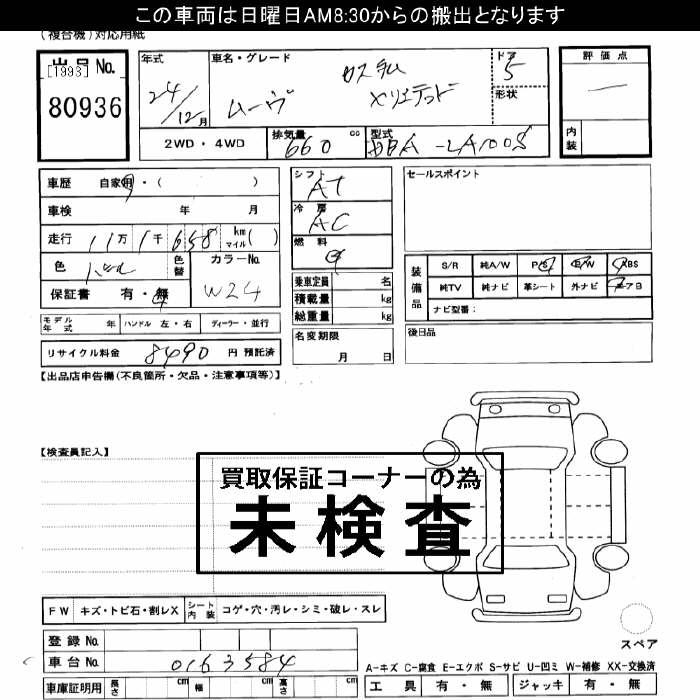 この車両は日曜日AM8:30からの搬出となります
(複合機)対応用紙
出品No.
[1993]
80936
年式
24/12月
車名・グレード
ムーヴ
カスタム
ドア
5
形状
評価点
内装
2WD・4WD
排気量
660 cc
型式
DBA-LA100S
車歴 自家用・( )
車検 年 月
走行 11万 1千 658 km マイル( )
色 パール
色替
カラーNo.
W24
保証書 有・無
シフト
AT
冷房
AC
燃料
乗車定員 名
積載量 kg
総重量 kg
名変期限
月 日
セールスポイント
装備品
S/R 純A/W P/S P/W ABS
純TV 純ナビ 革シート 外ナビ エアB
ナビ型番:
後日品
モデル年式 年 ハンドル 左・右 ディーラー・並行
リサイクル料金 8490 円 預託済
【出品店申告欄(不良箇所・欠品・注意事項等)】
【検査員記入】
買取保証コーナーの為
未検査
FW キズ・トビ石・割レX シート内装 コゲ・穴・汚レ・シミ・破レ・スレ
登録No.
車台No. 0163584
車庫証明用 長さ cm 幅 cm 高さ cm
スペア
A-キズ C-腐食 E-エクボ S-サビ U-凹ミ W-補修 XX-交換済
工具 有・無 ジャッキ 有・無